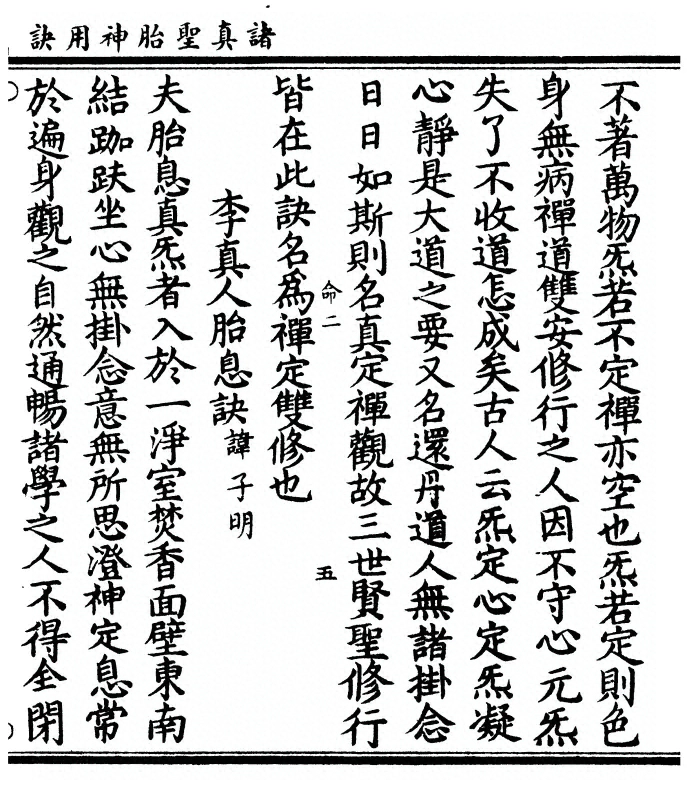 諸真聖胎神用訣
不著萬物炁若不定禪亦空也炁若定則色
身無病禪道雙安修行之人因不守心元炁
失了不收道怎成矣古人云炁定心定炁凝
心靜是大道之要又名還丹道人無諸掛念
日日如斯則名真定禪觀故三世賢聖修行
命二
五
皆在此訣名爲禪定雙修也
李真人胎息訣諱子明
夫胎息真炁者入於一淨室焚香面壁東南
結跏趺坐心無掛念意無所思澄神定息常
於遍身觀之自然通暢諸學之人不得全閉